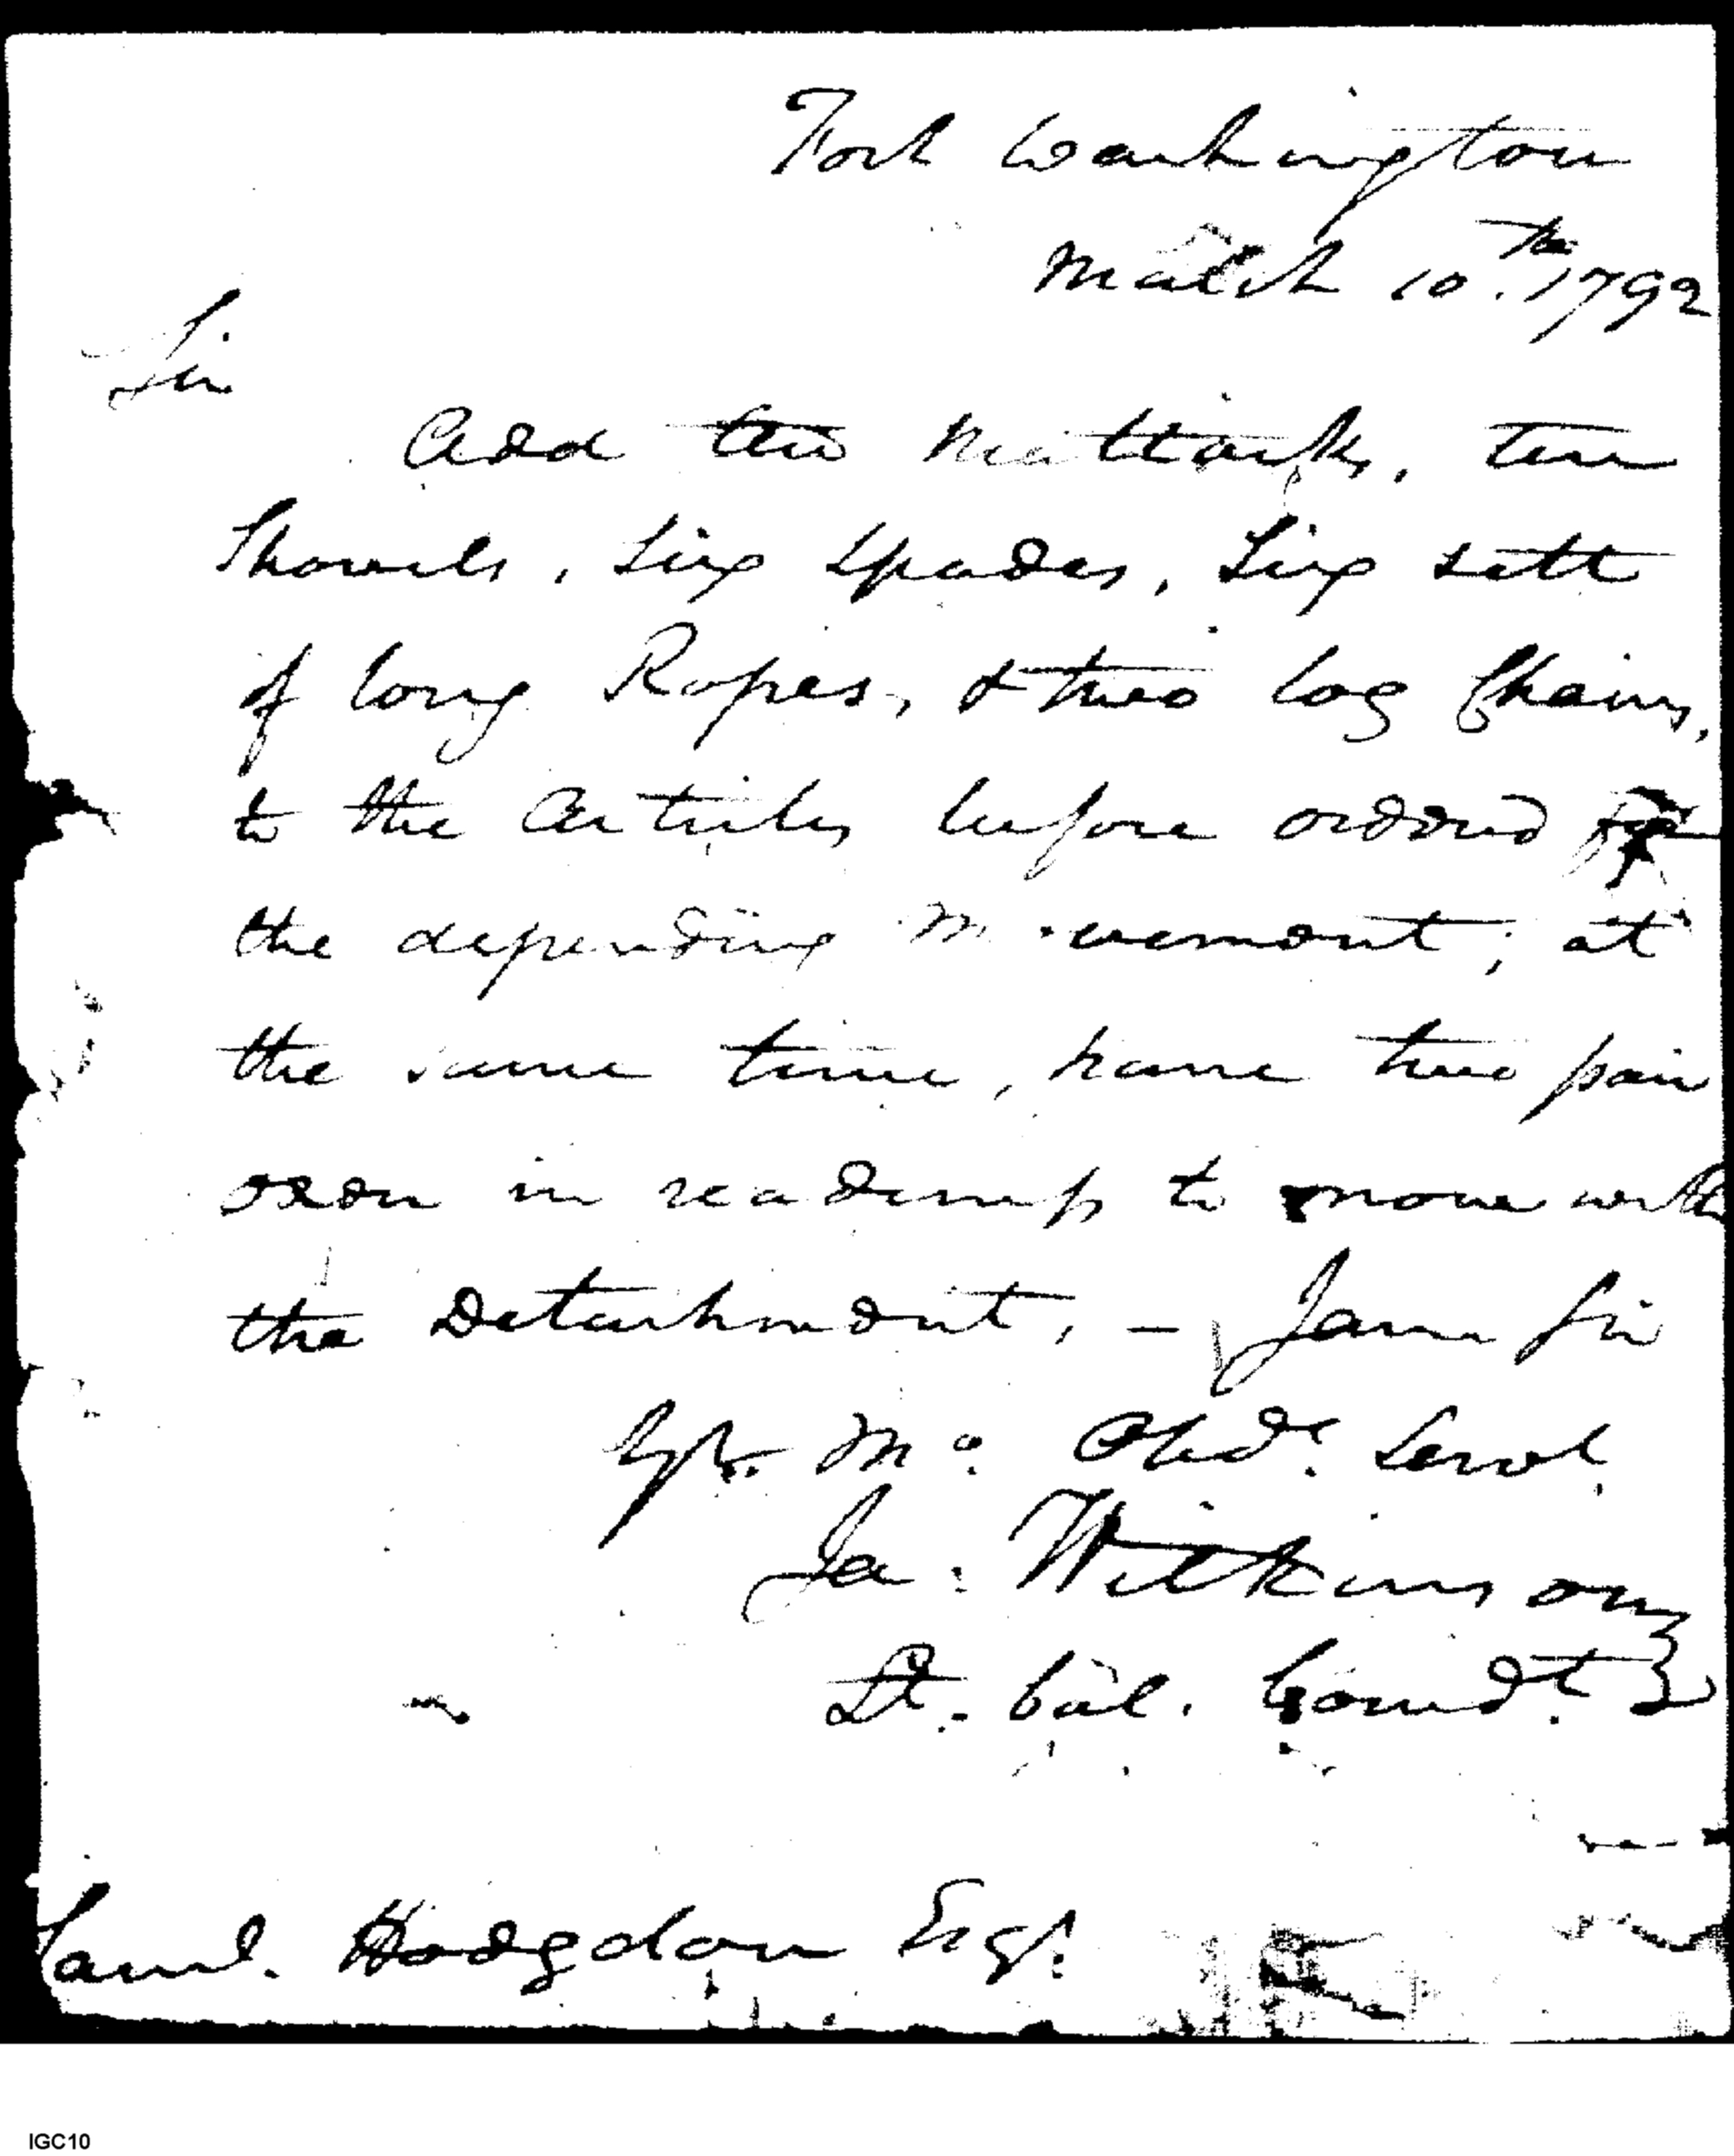 Fort Washington
March 10.th 1792
Sir
Add two Mattocks, ten
Shovels, Six Spades, Six sett
of long Ropes, & two log Chains,
to the Articles before ordered for
the depending Movement; at
the same time, have two pair
oxen in readiness to move with
the Detachment, - I am Sir
Yr. Mo. Obdt. Servt.
Ja: Wilkinson
Lt. Col. Comdt.
Saml. Hodgdon Esqr.
IGC10